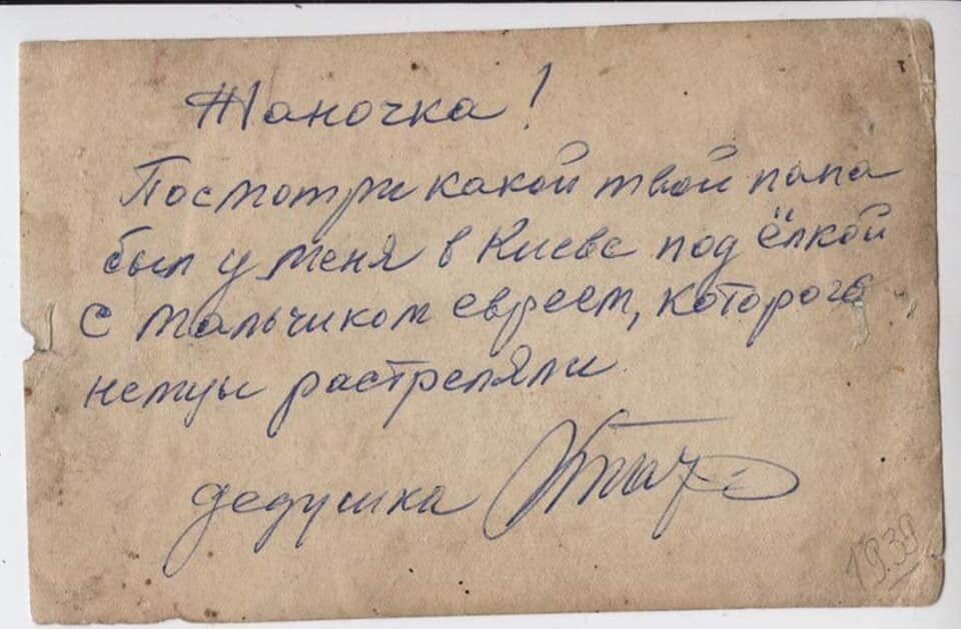 Жаночка!
Посмотри какой твой папа
был у меня в Киеве под ёлкой
с мальчиком евреем, которого
немцы растреляли
дедушка
1939